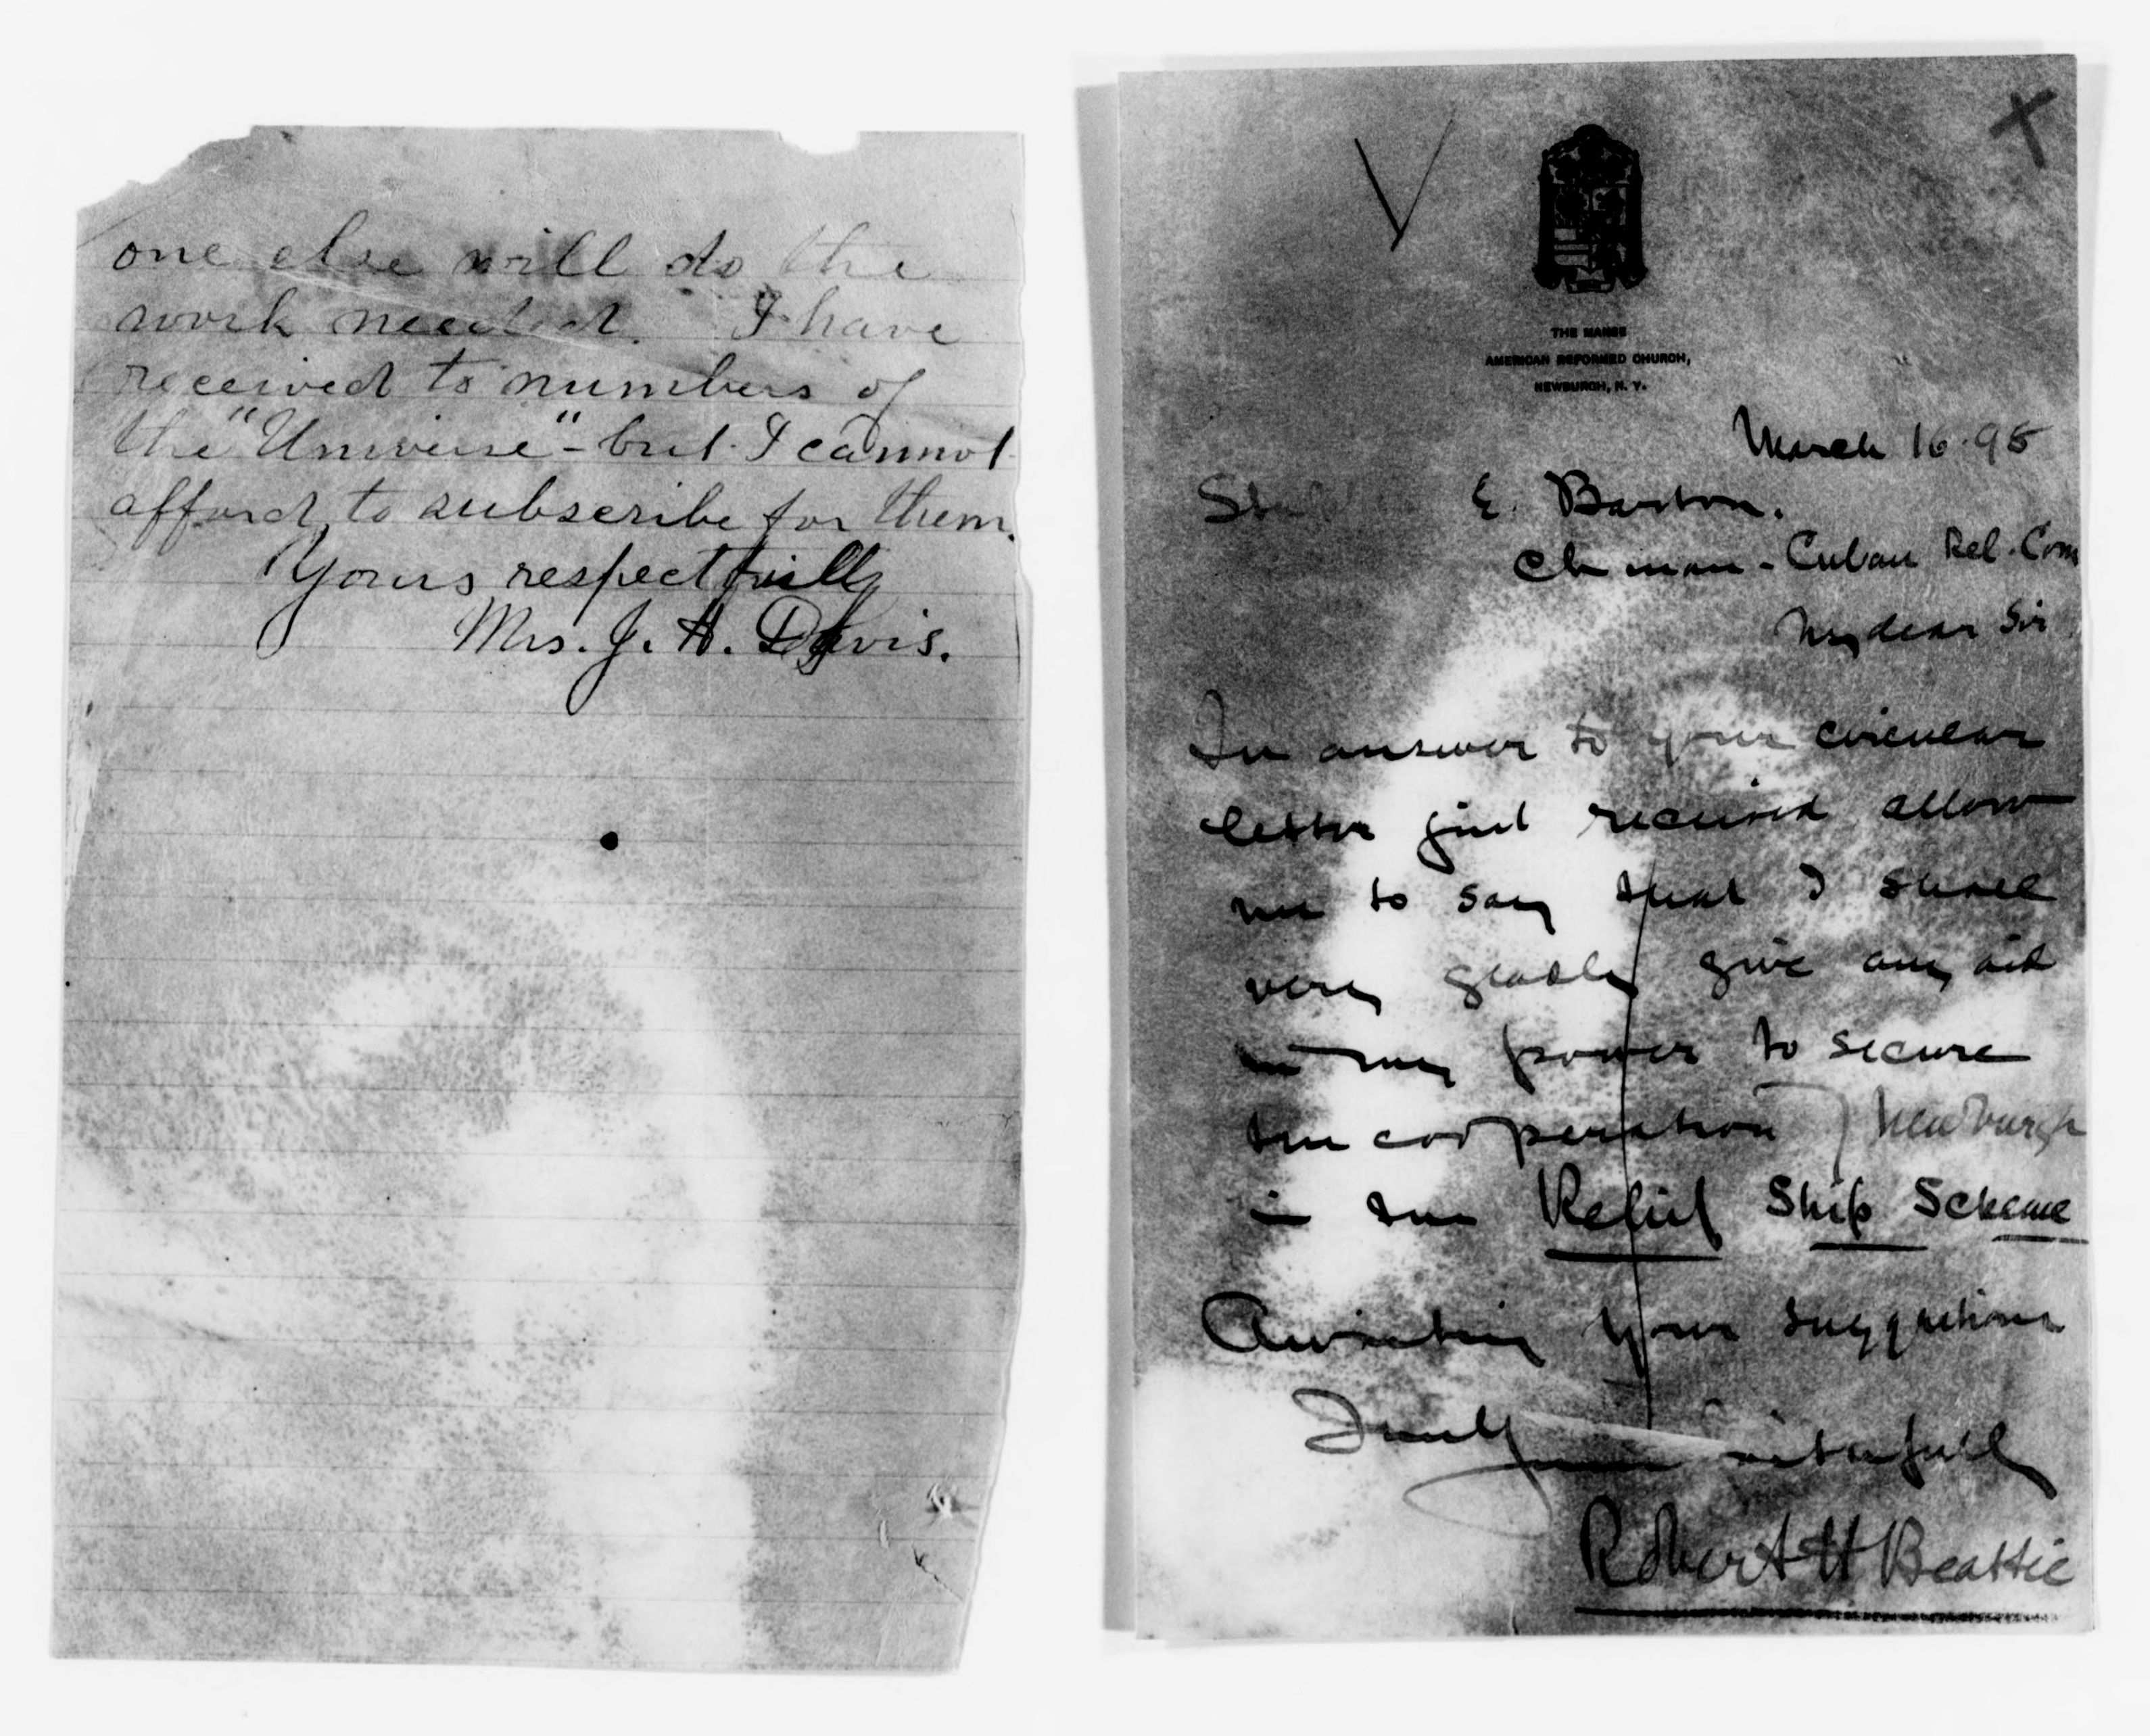 one else will do the
work needed. I have
received to numbers of
the "Universe" - but I cannot
afford to subscribe for them.
Yours respectfully
Mrs. J. H. Davis.
X
THE MANSE
AMERICAN REFORMED CHURCH,
NEWBURGH, N. Y.
March 16. 98
E. Barton.
Ch man - Cuban Rel. Com
My dear Sir
In answer to your circular
letter just received allow
me to say that I shall
very gladly give any aid
in my power to secure
the cooperation of Newburgh
in the Relief Ship Scheme
Awaiting your suggestions
faithfully
Robert H Beattie